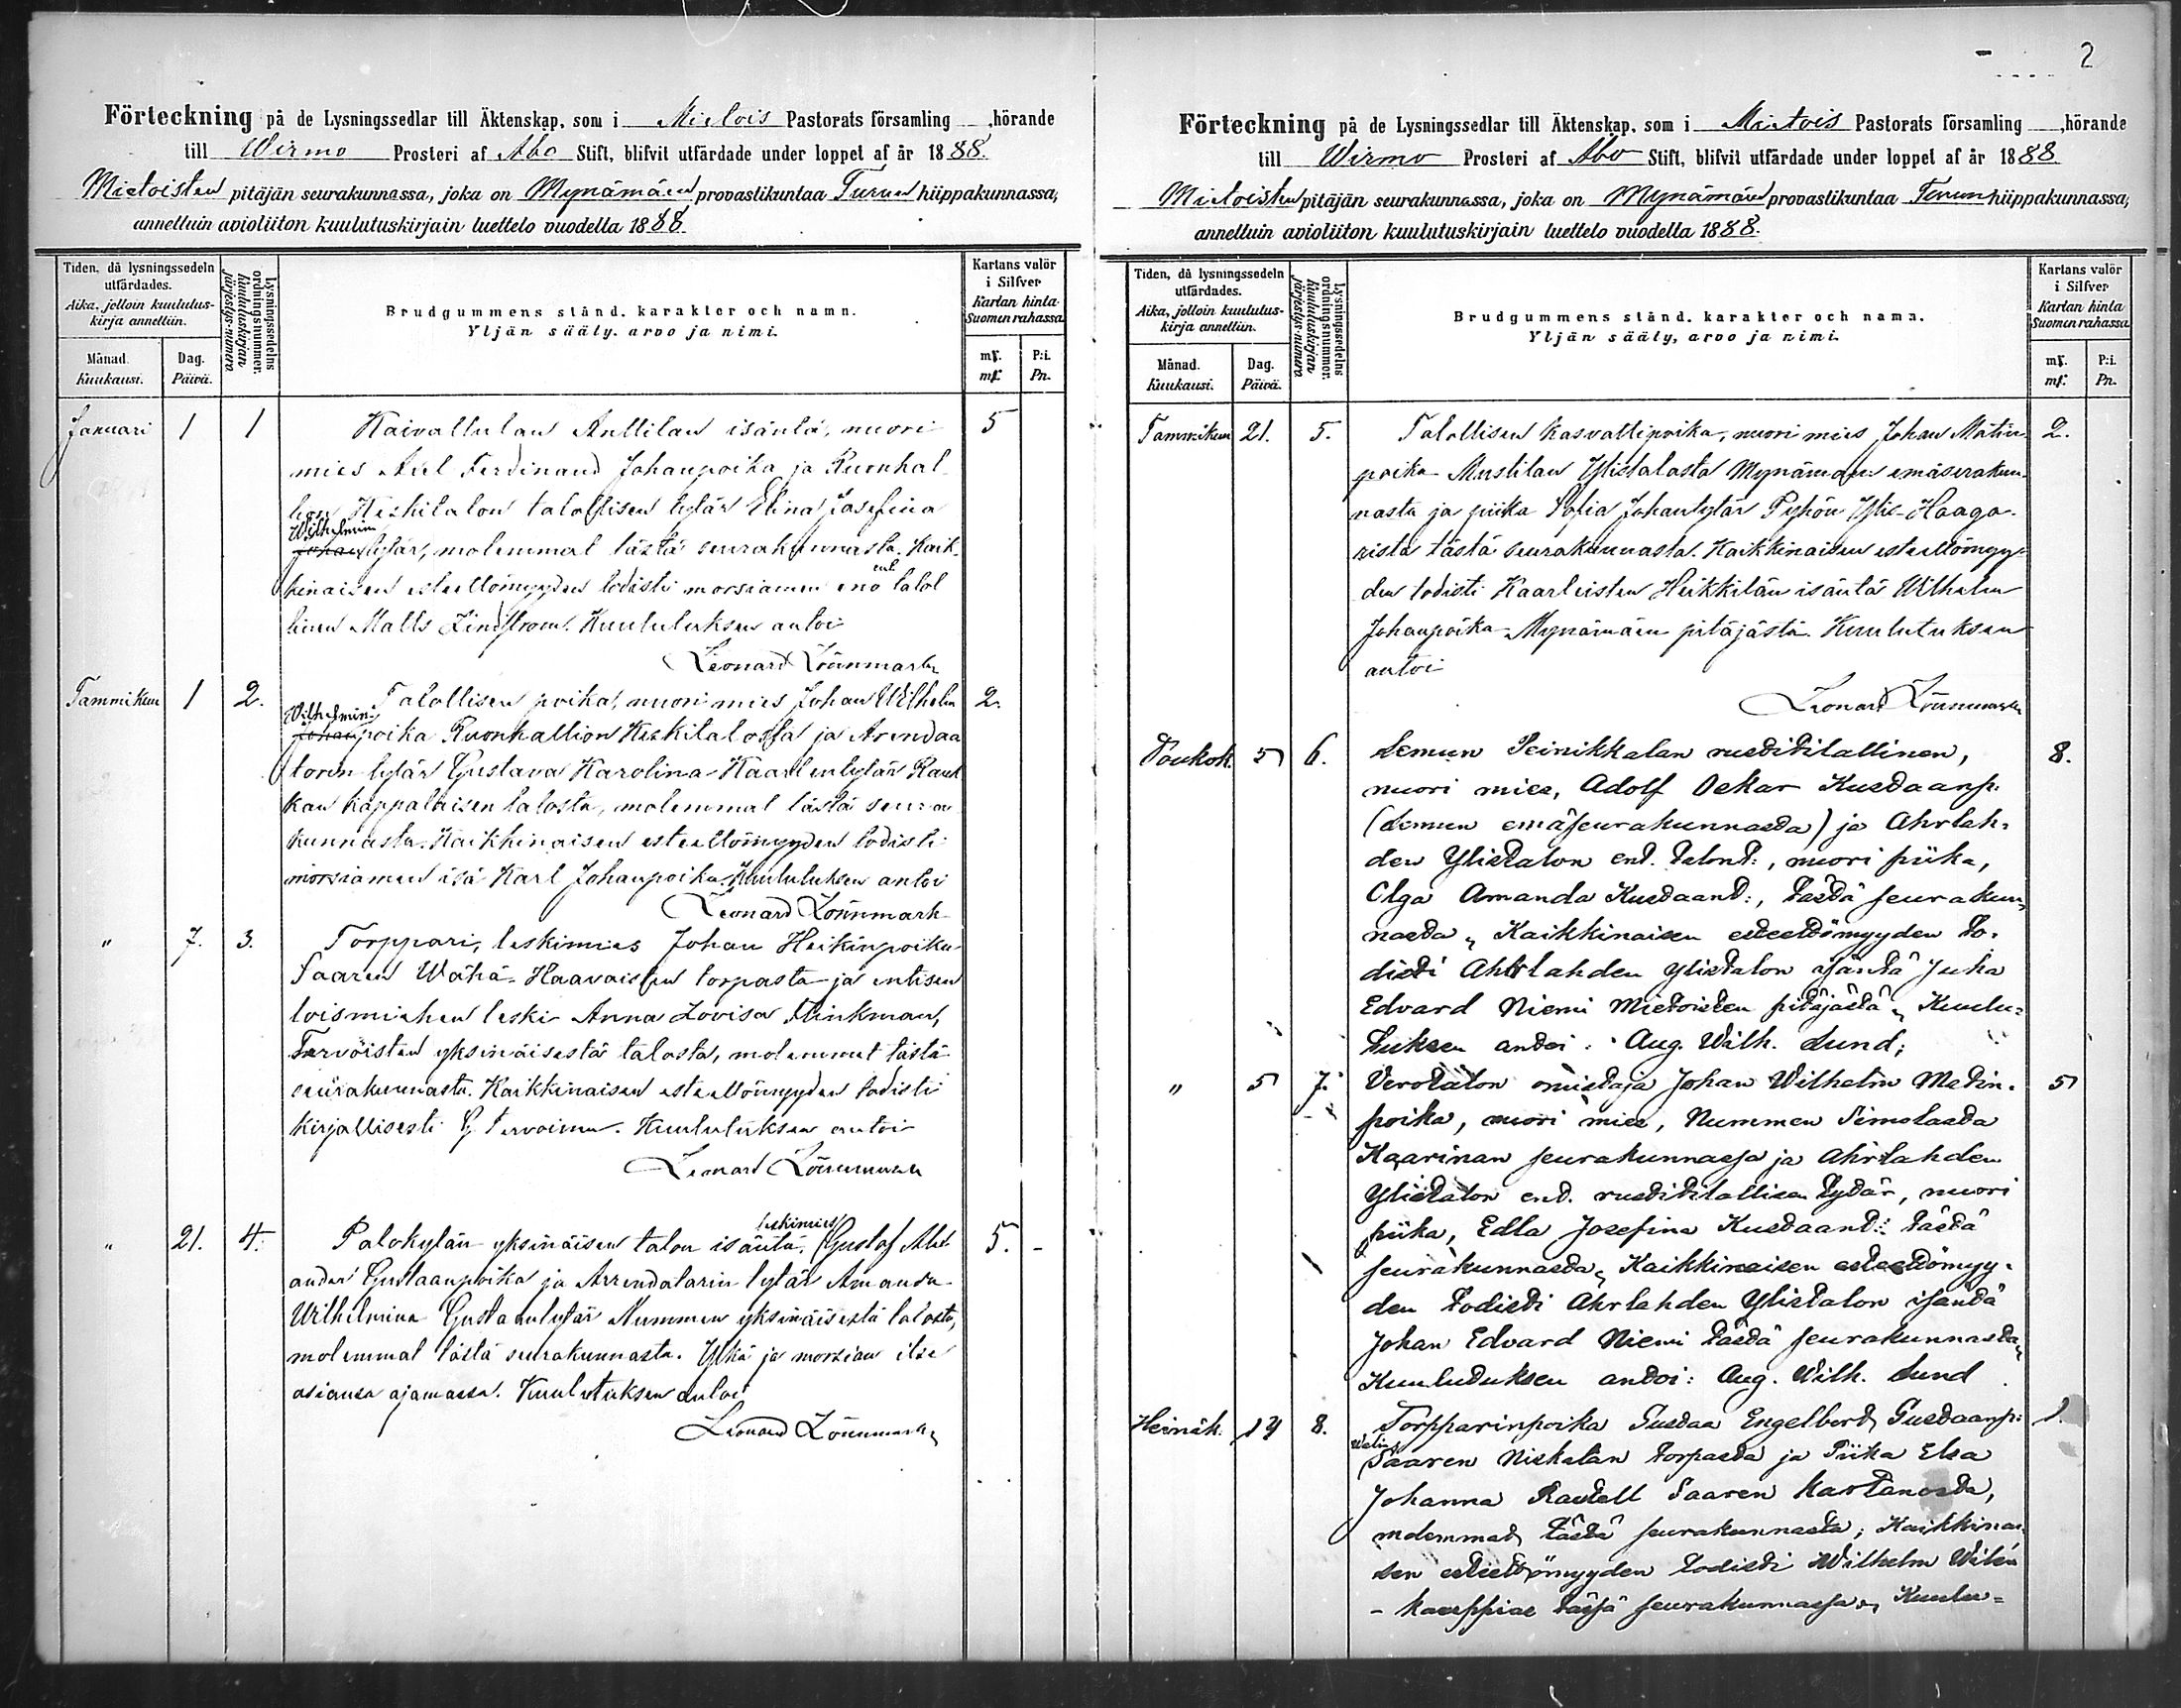 2
Förteckning på de Lysningssedlar till Äktenskap, som i Mietois Pastorats församling ,hörande
till Wirmo Prosteri af Åbo Stift, blifvit utfärdade under loppet af år 1888.
Mietoisten pitäjän seurakunnassa, joka on Mynämäen provastikuntaa Turun hiippakunnassa,
annettuin avioliiton kuulutuskirjain luettelo vuodella 1888
Tiden, då lysningssedeln utfärdades.
Aika, jolloin kuulutuskirja annettiin.
Månad. Kuukausi.
Dag. Päivä.
Lysningssedelns ordningsnummer.
Kuulutuskirjan järjestys-numero
Brudgummens stånd, karakter och namn.
Yljän sääty, arvo ja nimi.
Kartans valör i Silfver
Kartan hinta Suomen rahassa
mk. P:i.
mk. Pn.
Januari 1 1 Kaivattulan Anttilan isäntä, nuori 5
mies Axel Ferdinand Johanpoika ja Ruonhal-
lion Keskitalon talollisen tytär Elina Josefina
Wilhelmin
Johan tytär, molemmat tästä seurakunnasta. Kaik-
kinaisen esteettömyyden todisti morsiamen eno ent talol
linen Matts Lindstrom. Kuulutuksen antoi
Leonard Lönnmark
Tammikuu 1 2. Talollisen poika, nuori mies Johan Wilhelm 2.
Wilhelmin
Johan poika Ruonhallion Keskitalossa ja Arendaa
torin tytär Gustava Karolina Kaarlentytär Rauk
kan Kappalaisen talosta, molemmat tästä seura
kunnasta. Kaikkinaisen esteettömyyden todisti
morsiamen isä Karl Johanpoika. Kuulutuksen antoi
Leonard Lönnmark
" 7. 3. Torppari, leskimies Johan Heikinpoika
Saaren Wähä-Haavaisten torpasta ja entisen
loismiehen leski Anna Lovisa Flinkman,
Tervöisten yksinäisestä talosta, molemmat tästä
seurakunnasta. Kaikkinaisen esteettömyyden todisti
kirjallisesti G. Tervoinen. Kuulutuksen antoi
Leonard Lönnmark
" 21. 4. Palokylän yksinäisen talon isäntä, leskimies Gustaf Alex 5. -
ander Gustaanpoika ja Arrendatarin tytär Amanda
Wilhelmina Gustaantytär Nummen yksinäisestä talosta,
molemmat tästä seurakunnasta. Ylkä ja morsian itse
asiansa ajamassa. Kuulutuksen antoi
Leonard Lönnmark
Förteckning på de Lysningssedlar till Äktenskap, som i Mietois Pastorats församling ,hörande
till Wirmo Prosteri af Åbo Stift, blifvit utfärdade under loppet af år 1888
Mietoisten pitäjän seurakunnassa, joka on Mynämäen provastikuntaa Turun hiippakunnassa,
annettuin avioliiton kuulutuskirjain luettelo vuodella 1888.
Tiden, då lysningssedeln utfärdades.
Aika, jolloin kuulutuskirja annettiin.
Månad. Kuukausi.
Dag. Päivä.
Lysningssedelns ordningsnummer.
Kuulutuskirjan järjestys-numero
Brudgummens stånd, karakter och namn.
Yljän sääty, arvo ja nimi.
Kartans valör i Silfver
Kartan hinta Suomen rahassa
mk. P:i.
mk. Pn.
Tammikuu 21. 5. Talollisen Kasvattipoika, nuori mies Johan Matin- 2.
poika Mustilan Ylistalosta Mynämäen emäserakun-
nasta ja piika Sofia Johantytär Pyhön Ylis-Haaga-
rista tästä seurakunnasta. Kaikkinaisen esteettömyy-
den todisti Kaarleisten Heikkilän isäntä Wilhelm
Johanpoika Mynämäen pitäjästä. Kuulutuksen
antoi
Leonard Lönnmark
Toukok. 5 6. Lemun Peinikkalan rustitilallinen, 8.
nuori mies, Adolf Oskar Kustaanp:
(Lemun emäseurakunnasta) ja Ahrlah-
den Ylistalon ent. talont:, nuori piika,
Olga Amanda Kustaant:, tästä seurakun-
nasta, Kaikkinaisen esteettömyyden to-
disti Ahrlahden Ylistalon isäntä Juha
Edvard Niemi Mietoisten pitäjästä, Kuulu-
tuksen antoi: Aug. Wilh. Lund;
" 5 7. Verotalon omistaja Johan Wilhelm Matin- 5
poika, nuori mies, Nummen Simolasta
Kaarinan seurakunnassa ja Ahrlahden
Ylistalon ent. rustitilallisen tytär, nuori
piika, Edla Josefina Kustaant: tästä
seurakunnasta, Kaikkinaisen esteettömyy-
den todisti Ahrlahden Ylistalon isäntä
Johan Edvard Niemi tästä seurakunnasta,
Kuulutuksen antoi: Aug. Wilh. Lund
Heinäk. 14 8. Torpparinpoika Gustaa Engelbert Gustaanp: 1.
Walin,
Saaren Niskalan torpasta ja Piika Elsa
Johanna Rautell Saaren Kartanosta,
molemmat tästä seurakunnasta; Kaikkinai
sen esteettömyyden todisti Wilhelm Wilén
- kauppias tässä seurakunnassa, Kuulu=